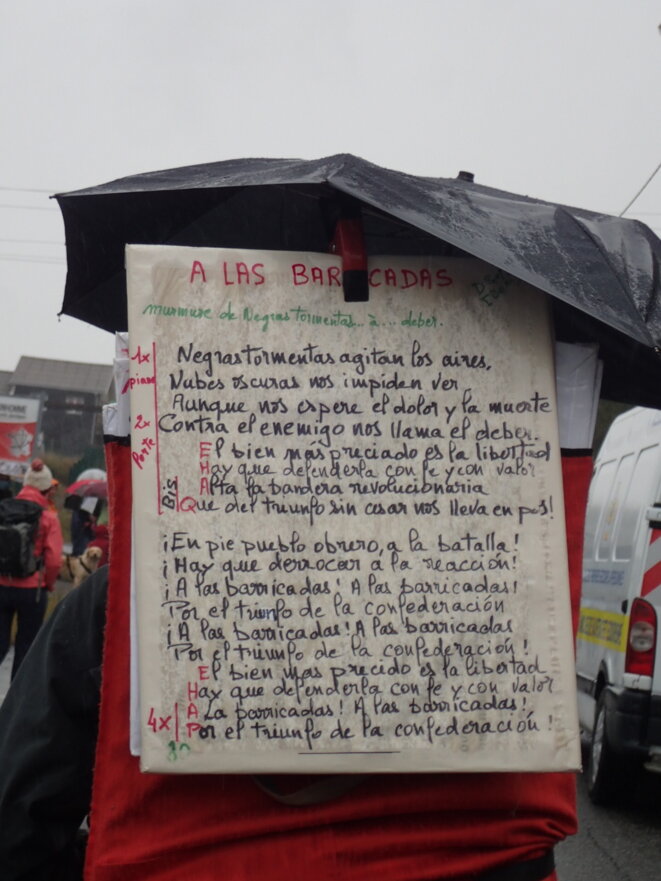 A LAS BARRICADAS
murmure de Negras tormentas... à ... deber.
1x
piano
Negras tormentas agitan los aires,
Nubes oscuras nos impiden ver,
Aunque nos espere el dolor y la muerte
2x
Forte
Contra el enemigo nos llama el deber.
El bien más preciado es la libertad
Hay que defenderla con fe y con valor
Alta la bandera revolucionaria
BIS
Que del triunfo sin cesar nos lleva en pos!
¡En pie pueblo obrero, a la batalla!
¡Hay que derrocar a la reacción!
¡A las barricadas! A las barricadas!
Por el triunfo de la confederación
¡A las barricadas! A las barricadas
Por el triunfo de la confederación!
El bien mas precido es la libertad
Hay que defenderla con fe y con valor
4x
A La barricadas! A las barricadas!
Por el triunfo de la confederación!